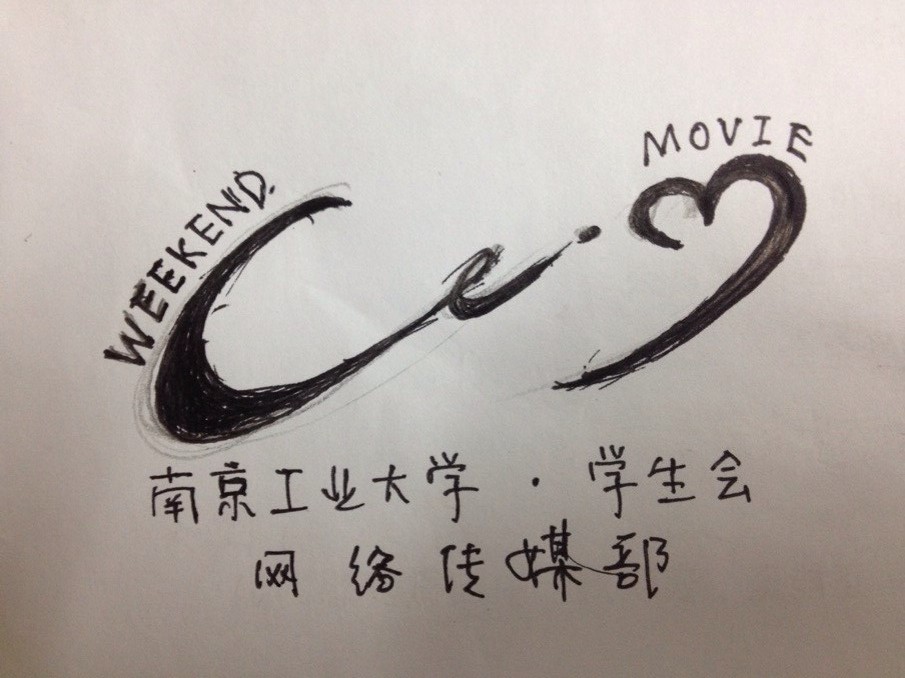 WEEKEND
MOVIE
南京工业大学·学生会
网络传媒部